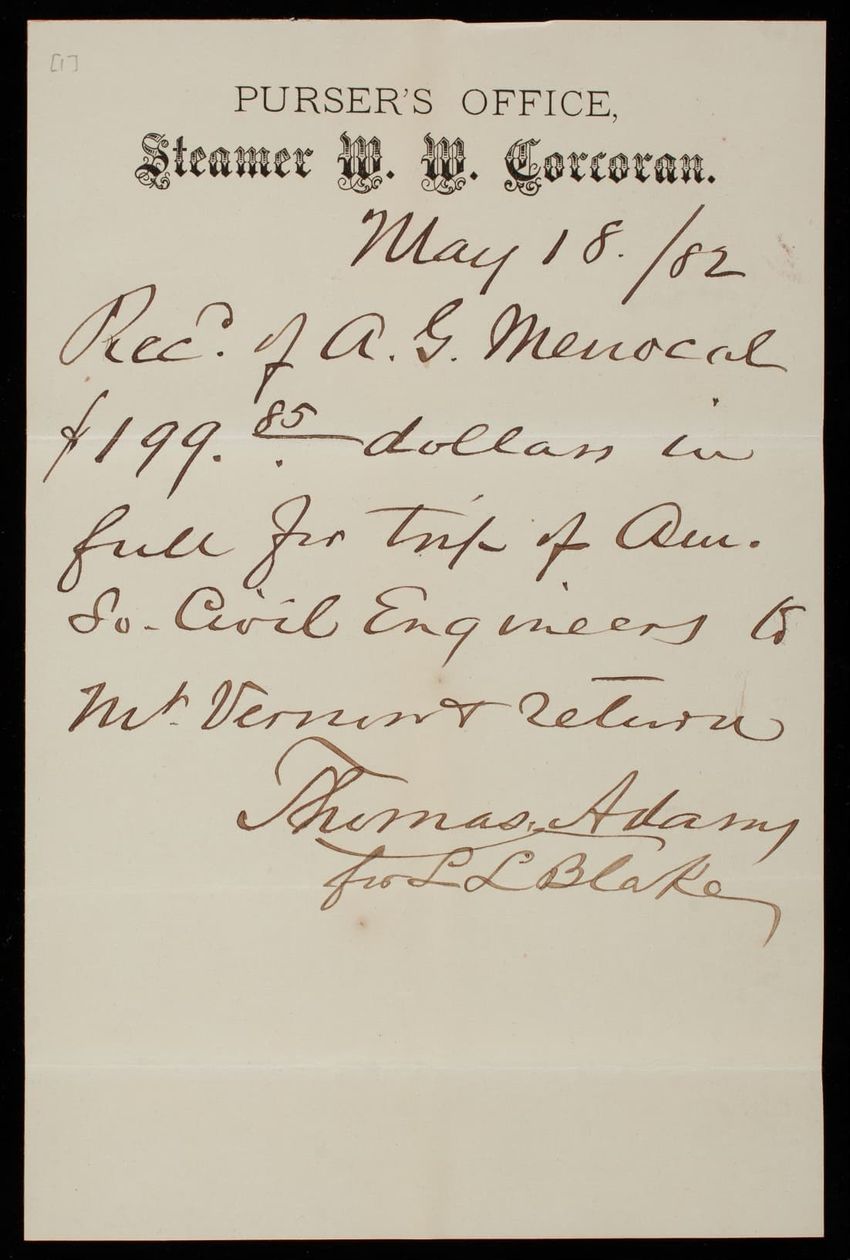 [1]
PURSER'S OFFICE,
Steamer W. W. Corcoran.
May 18. /82
Rec'd. of A. G. Menocal
$199. 85 dollars in
full for trip of Am.
So. Civil Engineers to
Mt. Vernon & return
Thomas Adams
for L L Blake